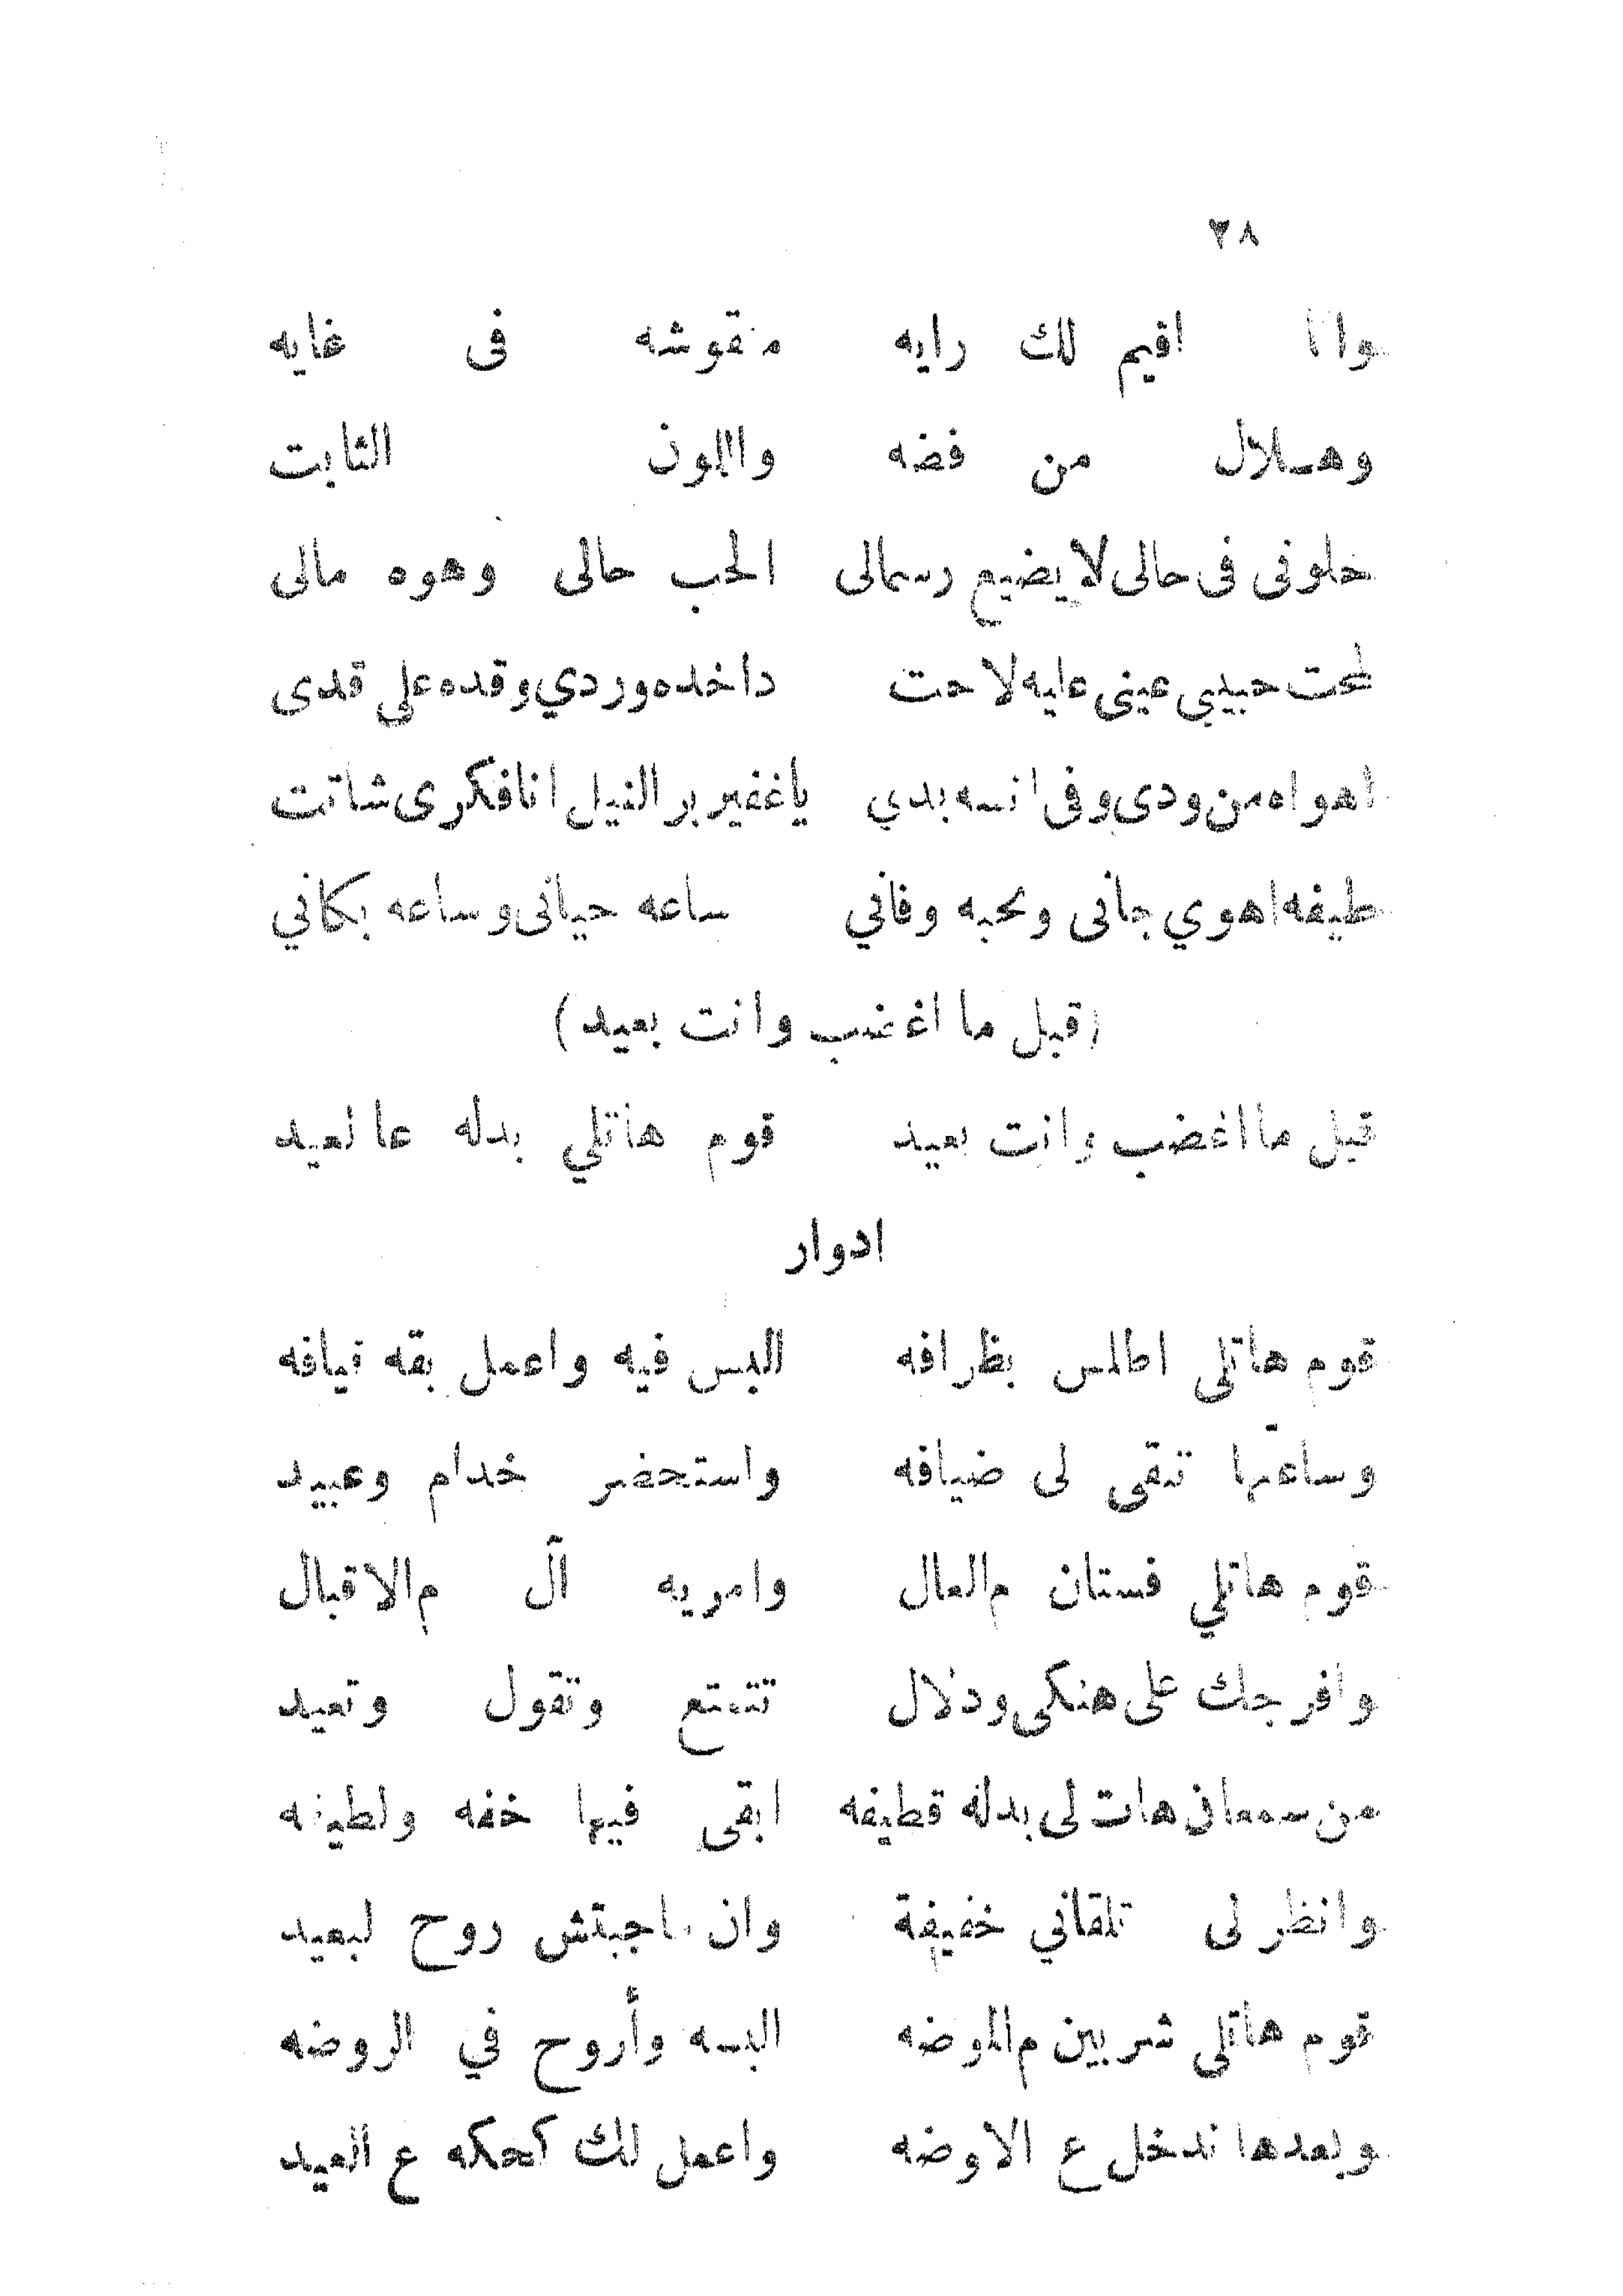 ٣٨
وانا اقيم لك رايه منقوشه فى غايه
وهـلال من فضه واللون الثابت
خلونى فى حالى لا يضيع رسمالى الحب حالى وهوه مالى
لمحت حبيبي عينى عليه لاحت داخده وردي وقده على قدى
اهواه من ودى وفى انسه بدي ياغفير بر النيل انا فكرى شاتت
طيفه اهوي جانى وبحبه وفاني ساعه حيانى وساعه بكاني
(قبل ما اغضب وانت بعيد)
قبل ما اغضب وانت بعيد قوم هاتلي بدله عالعيد
ادوار
قوم هاتلى اطلس بظرافه البس فيه واعمل بقه قيافه
وساعتها تبقى لى ضيافه واستحضر خدام وعبيد
قوم هاتلي فستان م العال وامريه آل م الاقبال
وافرجك على هنكى ودلال تتمتع وتقول وتعيد
من سمعان هات لى بدله قطيفه ابقى فيها خفه ولطيفه
وانظر لى تلقاني خفيفة وان ماجبتش روح لبعيد
قوم هاتلى شربين م الموضه البسه وأروح في الروضه
وبعدها ندخل ع الاوضه واعمل لك كحكه ع العيد